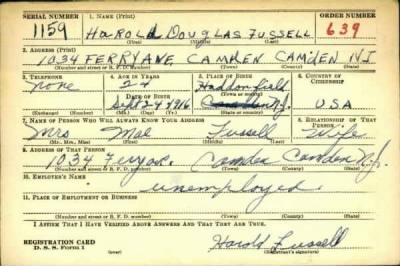 SERIAL NUMBER 1. NAME (Print) ORDER NUMBER
1159 HAROLD DOUGLAS FUSSELL 639
(First) (Middle) (Last)
2. ADDRESS (Print)
1034 FERRY AVE CAMDEN CAMDEN N.J.
(Number and street or R. F. D. number) (Town) (County) (State)
3. TELEPHONE 4. AGE IN YEARS 5. PLACE OF BIRTH 6. COUNTRY OF CITIZENSHIP
none 24 Haddonfield
DATE OF BIRTH (Town or county)
Sept 24 1916 Camden N.J. USA
(Exchange) (Number) (Mo.) (Day) (Yr.) (State or country)
7. NAME OF PERSON WHO WILL ALWAYS KNOW YOUR ADDRESS 8. RELATIONSHIP OF THAT PERSON
Mrs Mae Fussell Wife
(Mr., Mrs., Miss) (First) (Middle) (Last)
9. ADDRESS OF THAT PERSON
1034 Ferry av. Camden Camden N.J.
(Number and street or R. F. D. number) (Town) (County) (State)
10. EMPLOYER'S NAME
unemployed
11. PLACE OF EMPLOYMENT OR BUSINESS
(Number and street or R. F. D. number) (Town) (County) (State)
I AFFIRM THAT I HAVE VERIFIED ABOVE ANSWERS AND THAT THEY ARE TRUE.
REGISTRATION CARD Harold Fussell
D. S. S. Form 1 (Registrant's signature)